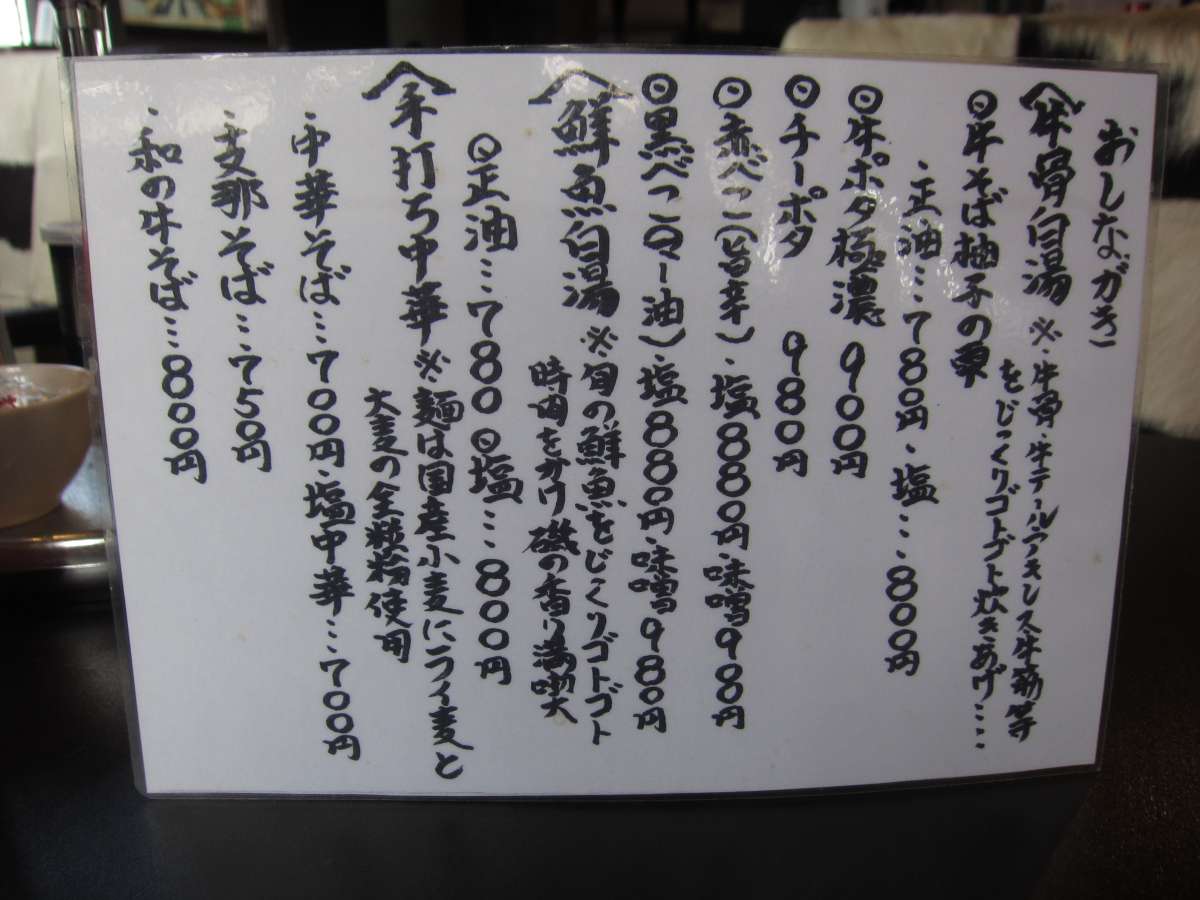 おしながき
〈牛骨白湯 ※・牛骨・牛テール・アキレス牛筋等
をじっくりゴトゴト炊きあげ‥‥
⊙牛そば柚子の雫
・正油…780円・塩…800円
⊙牛ポタ極濃 900円
⊙チーポタ 980円
⊙赤べこ(旨辛)・塩880円・味噌900円
⊙黒べこ(マー油)・塩880円・味噌980円
〈鮮魚白湯 ※旬の鮮魚をじっくりゴトゴト
時間をかけ磯の香り満喫
⊙正油…780 ⊙塩…800円
〈手打ち中華 ※麺は国産小麦にライ麦と
大麦の全粒粉使用
・中華そば…700円・塩中華…700円
・支那そば…750円
・和の牛そば…800円